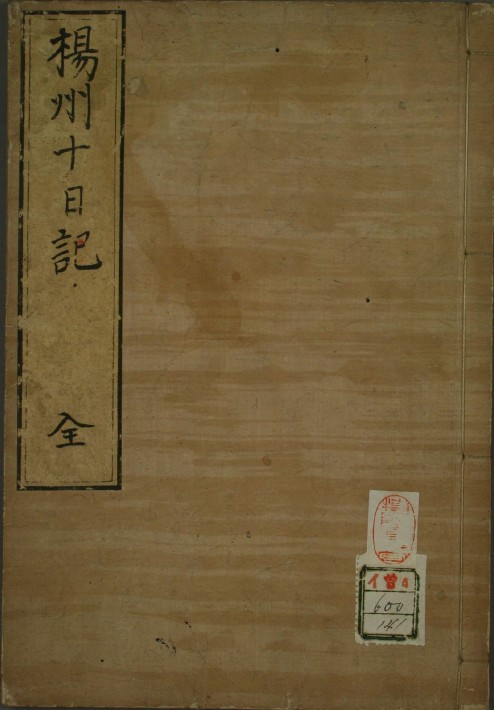 楊州十日記
全
イ曽4
600
141